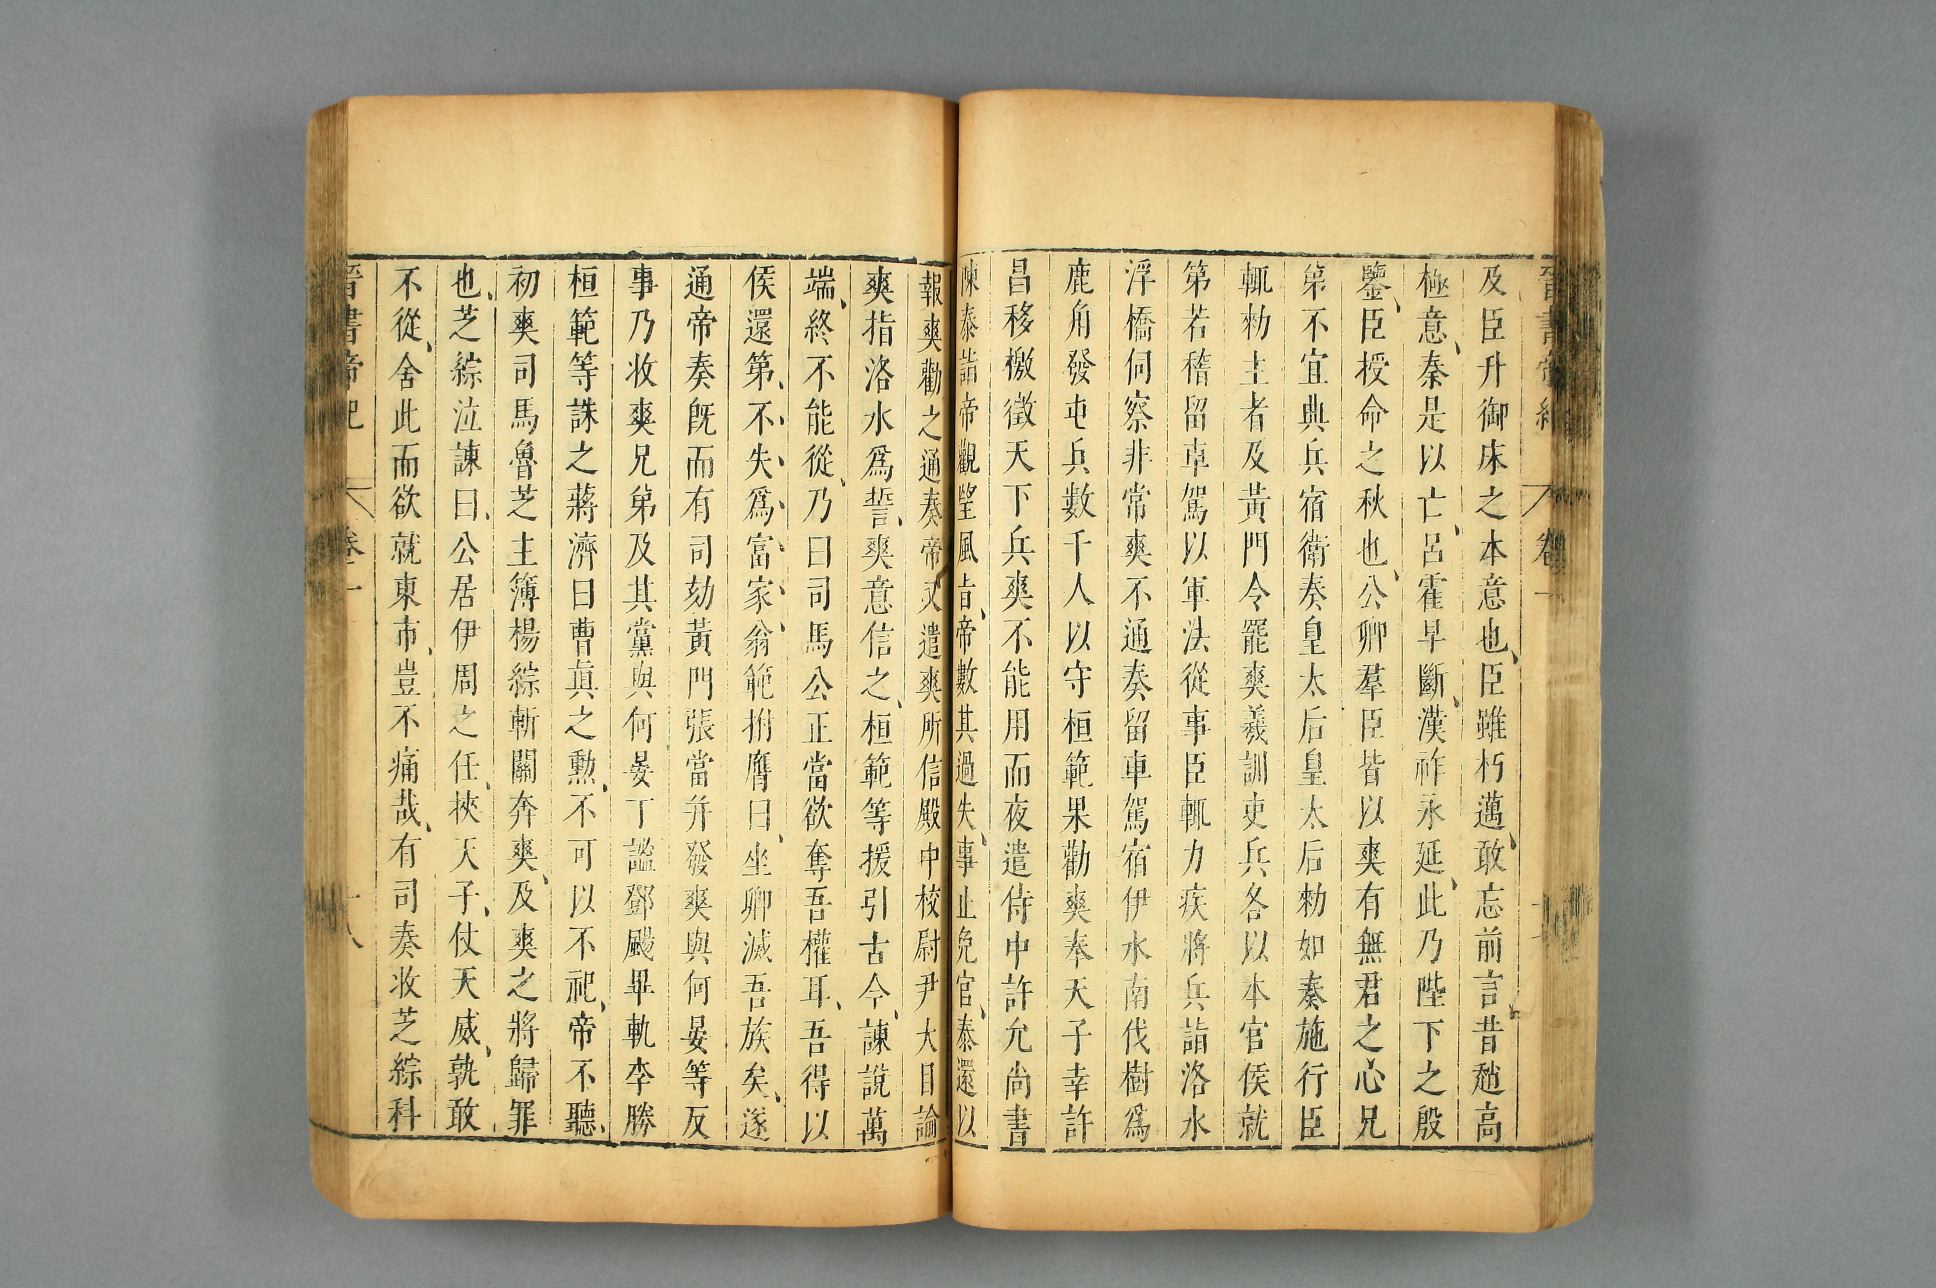 晉書帝紀 卷一
及臣升御床之本意也臣雖朽邁敢忘前言昔趙高
極意秦是以亡呂霍早斷漢祚永延此乃陛下之殷
鑒臣授命之秋也公卿羣臣皆以爽有無君之心兄
弟不宜典兵宿衛奏皇太后皇太后勑如奏施行臣
輒勑主者及黃門令罷爽羲訓吏兵各以本官侯就
第若稽留車駕以軍法從事臣輒力疾將兵詣洛水
浮橋伺察非常爽不通奏留車駕宿伊水南伐樹爲
鹿角發屯兵數千人以守桓範果勸爽奉天子幸許
昌移檄徵天下兵爽不能用而夜遣侍中許允尚書
陳泰詣帝觀望風旨帝數其過失事止免官泰還以
報爽勸之通奏帝又遣爽所信殿中校尉尹大目諭
爽指洛水爲誓爽意信之桓範等援引古今諫說萬
端終不能從乃曰司馬公正當欲奪吾權耳吾得以
侯還第不失爲富家翁範拊膺曰坐卿滅吾族矣遂
通帝奏旣而有司劾黃門張當并發爽與何晏等反
事乃收爽兄弟及其黨與何晏丁謐鄧颺畢軌李勝
桓範等誅之蔣濟曰曹眞之勲不可以不祀帝不聽
初爽司馬魯芝主簿楊綜斬關奔爽及爽之將歸罪
也芝綜泣諫曰公居伊周之任挾天子仗天威孰敢
不從舍此而欲就東市豈不痛哉有司奏收芝綜科
晉書帝紀 卷一 十八